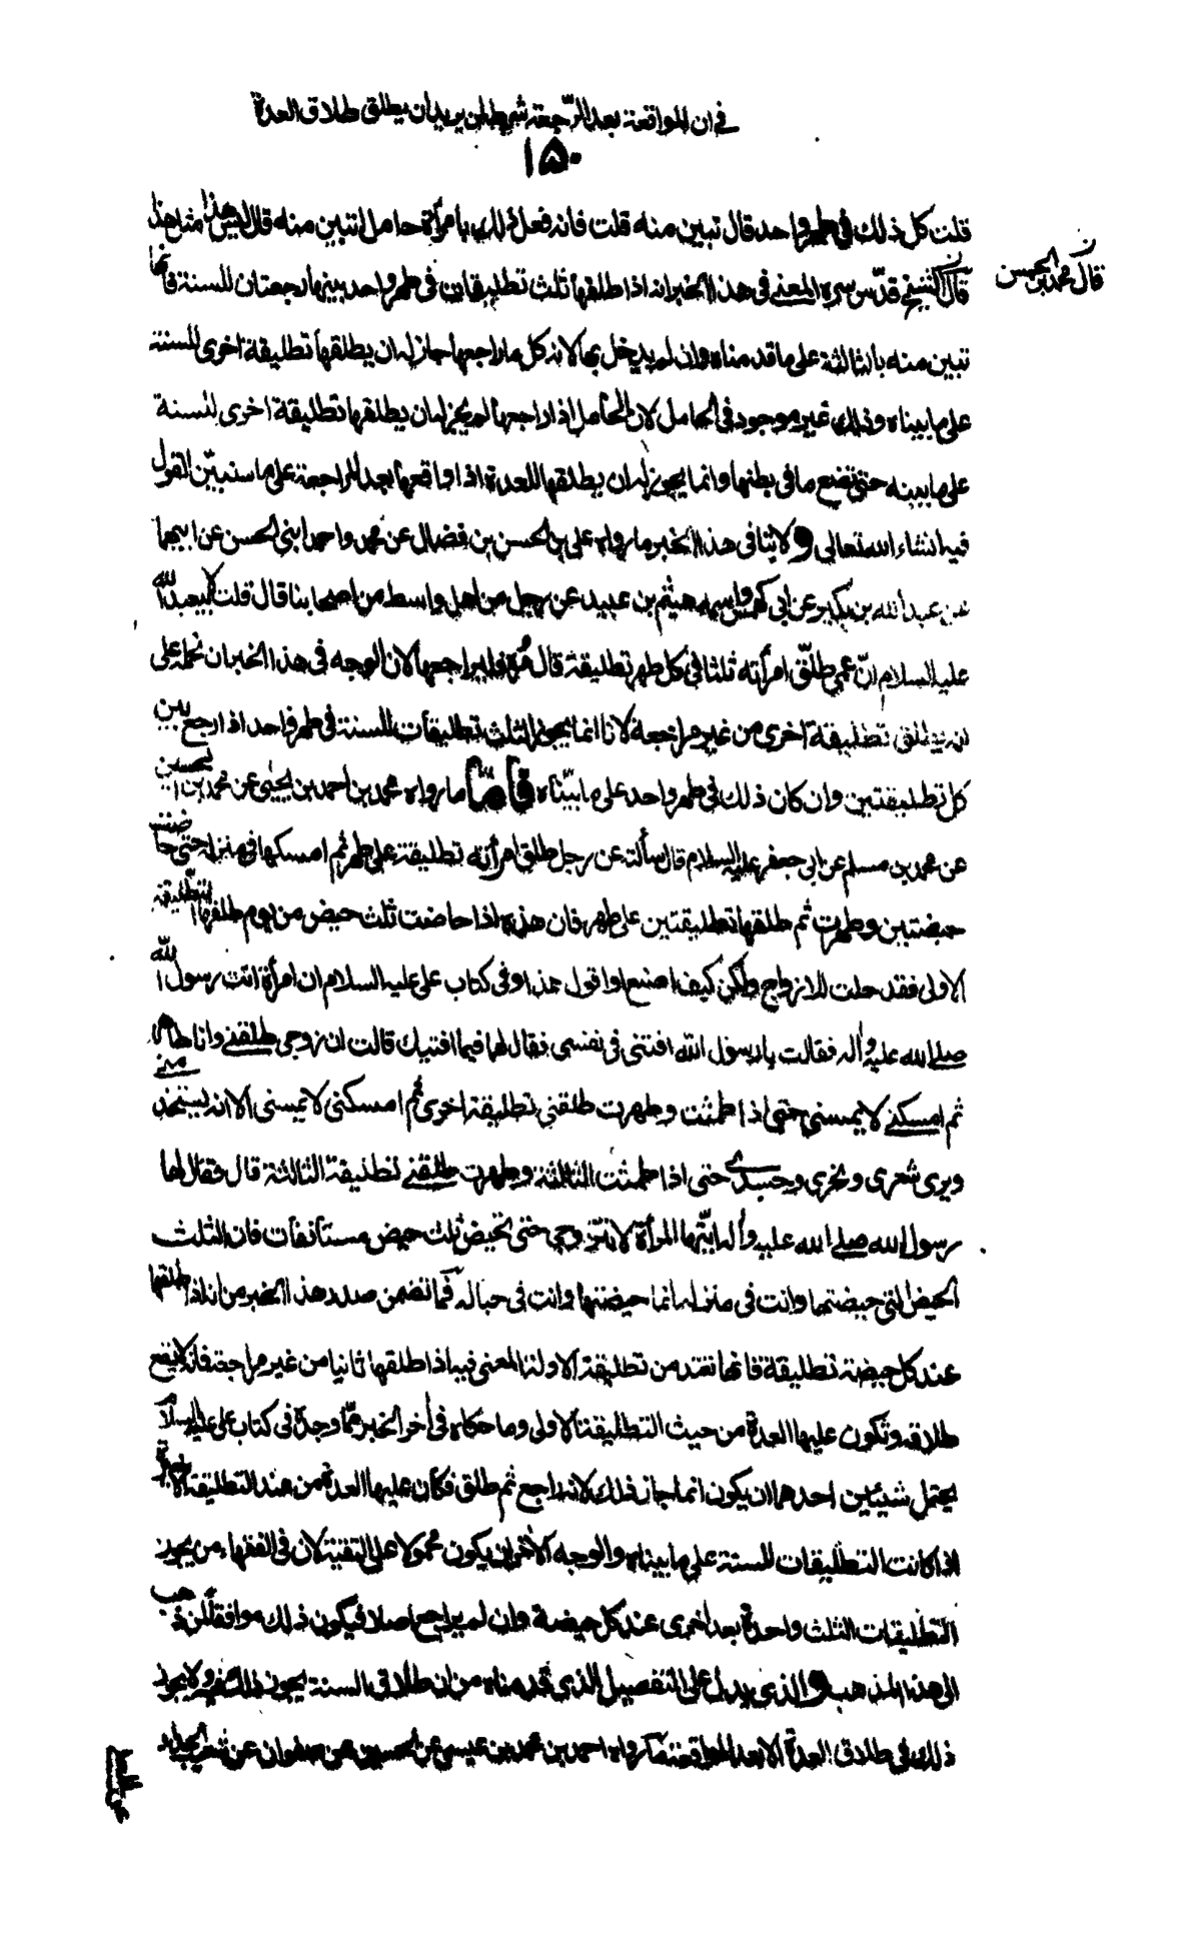 في ان المواقعة بعد الرّجعة شرط لمن يريد ان يطلق طلاق العدة
١٥٠
قلت كل ذلك في طهر واحد قال تبين منه قلت فانه فعل ذلك بامرأة حامل اتبين منه قال ليس هذا مثل هذا
قال محمد بن الحسن
قال الشيخ قدّس سره المعنى في هذا الخبر انه اذا طلقها ثلث تطليقات في طهر واحد بينها رجعتان للسنة فانها
تبين منه بالثالثة على ما قدمناه وان لم يدخل بها لانه كل ما راجعها جاز له ان يطلقها تطليقة اخرى للسنة
على ما بيناه وذلك غير موجود في الحامل لان الحامل اذا راجعها لم يجز له ان يطلقها تطليقة اخرى للسنة
على ما بينه حتى تضع ما في بطنها وانما يجوز له ان يطلقها للعدة اذا واقعها بعد المراجعة على ما سنبيّن القول
فيه انشاء الله تعالى ولا ينافي هذا الخبر ما رواه علي بن الحسن بن فضال عن محمد واحمد ابني الحسن عن ابيهما
عن عبد الله بن بكير عن ابي كهمس واسمه هيثم بن عبيد عن رجل من اهل واسط من اصحابنا قال قلت لابيعبد الله
عليه السلام انّ عمي طلّق امرأته ثلثا في كل طهر تطليقة قال مُره فليراجعها لان الوجه في هذا الخبر ان نحمله على
انه يطلق تطليقة اخرى من غير مراجعة لانا انما يجوز الثلث تطليقات للسنة في طهر واحد اذا رجع بين
كل تطليقتين وان كان ذلك في طهر واحد على ما بيّناه فامّا ما رواه محمد بن احمد بن يحيى عن محمد بن الحسين
عن محمد بن مسلم عن ابي جعفر عليه السلام قال سألته عن رجل طلق امرأته تطليقة على طهر ثم امسكها في منزله حتى حاضت
حيضتين وطهرت ثم طلقها تطليقتين على طهر فان هذه اذا حاضت ثلث حيض من يوم طلقها التطليقة
الاولى فقد حلت للازواج ولكن كيف اصنع او اقول هذا وفي كتاب علي عليه السلام ان امرأة اتت رسول الله
صلى الله عليه وآله فقالت يا رسول الله افتنى في نفسى فقال لها فيما افتيك قالت ان زوجى طلقنى وانا طاهر
ثم امسكنى لا يمسنى حتى اذا طمثت وطهرت طلقنى تطليقة اخرى ثم امسكنى لا يمسنى الا انه يستخدمنى
ويرى شعرى ونحرى وجسدى حتى اذا طمثت الثالثة وطهرت طلقنى تطليقة الثالثة قال فقال لها
رسول الله صلى الله عليه وآله ايّتها المرأة لا تتزوجى حتى تحيض ثلث حيض مستأنفات فان الثلث
الحيض التى حيضتها وانت في منزله انما حيضتها وانت في حباله فما تضمن صدر هذا الخبر من انه اذا طلقها
عند كل حيضة تطليقة فانها تعتد من تطليقة الاولى المعنى فيه اذا طلقها ثانيا من غير مراجعة فانه لا يقع
طلاقه وتكون عليها العدة من حيث التطليقة الاولى وما حكاه في آخر الخبر ممّا وجده في كتاب علي عليه السلام
يحتمل شيئين احدهما ان يكون انما جاز ذلك لانه راجع ثم طلق فكان عليها العدة من عند التطليقة الاخيرة
اذا كانت التطليقات للسنة على ما بيناه والوجه الآخر ان يكون محمولا على التقية لان في الفقهاء من يجوز
التطليقات الثلث واحدة بعد اخرى عند كل حيضة وان لم يراجع اصلا فيكون ذلك موافقاً لمن ذهب
الى هذا المذهب والذى يدل على التفصيل الذى قدمناه من ان طلاق السنة يجوز ولا يجوز
ذلك في طلاق العدة الا بعد المواقعة ما رواه احمد بن محمد بن عيسى عن الحسين عن صفوان عن شعيب الحداد